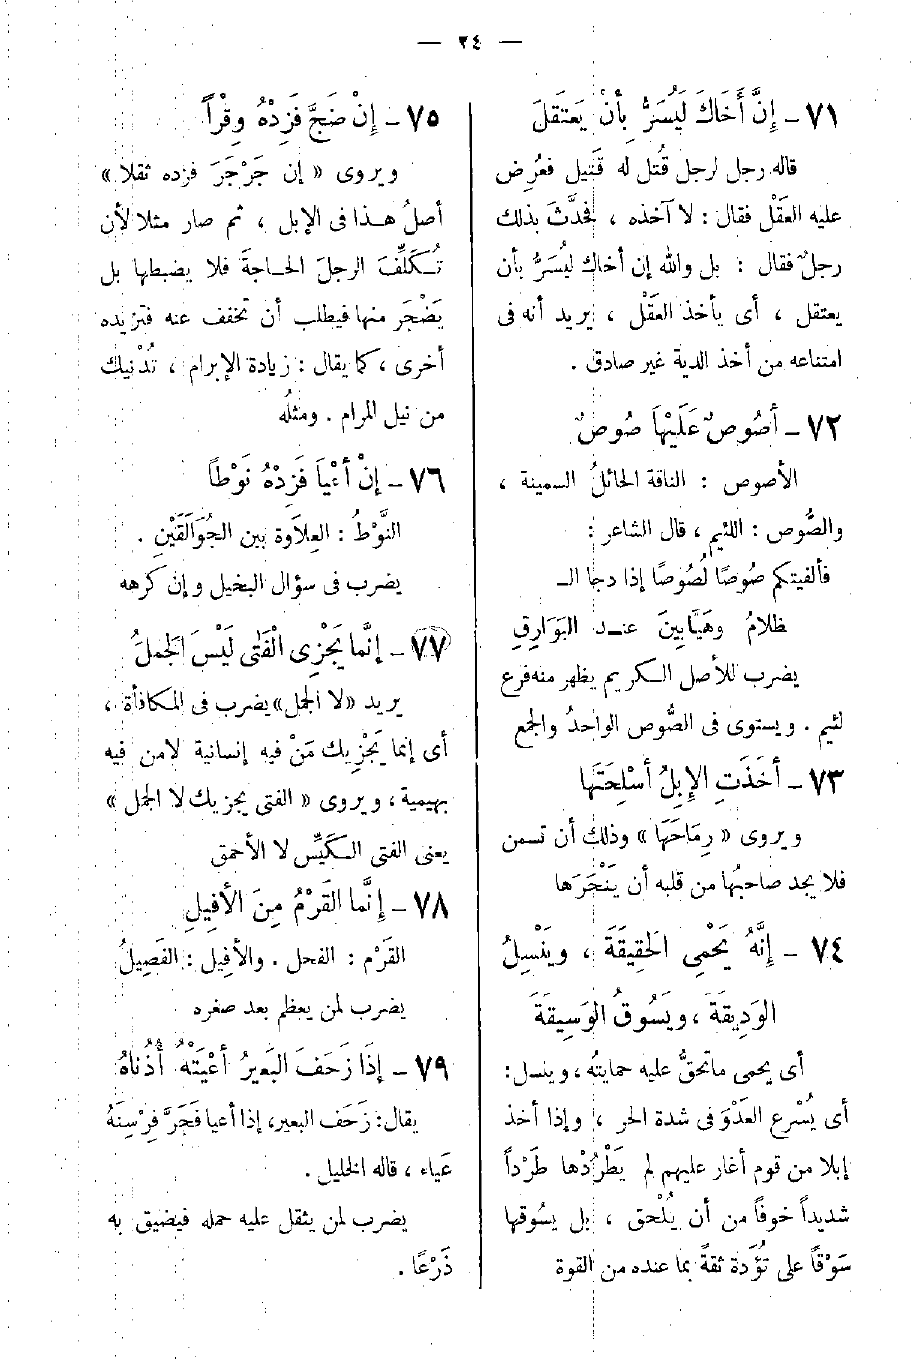 — ٢٤ —
٧١ – إِنَّ أَخَاكَ لَيُسَرُّ بِأَنْ يَعتَقلَ
قاله رجل لرجل قُتل له قَتيل فعُرِض
عليه العَقْل فقال : لا آخذه ، فحدَّثَ بذلك
رجلٌ فقال : بل والله إن أخاك ليُسَرُّ بأن
يعتقل ، أى يأخذ العَقْل ، يريد أنه فى
امتناعه من أخذ الدية غير صادق .
٧٢ – أَصُوصٌ عَلَيْهَا صُوصٌ
الأصوص : الناقة الحائلُ السمينة ،
والصُّوص : اللئيم ، قال الشاعر :
فألفيتكم صُوصًا لُصُوصًا إذا دجا الـ
ظلامُ وهَيَّابِينَ عنـد البَوَارِقِ
يضرب للأصل الكريم يظهر منه فرع
لئيم . ويستوى فى الصُّوص الواحدُ والجمع
٧٣ – أَخَذَتِ الإِبِلُ أَسْلِحَتَهَا
ويروى « رِمَاحَهَا » وذلك أن تسمن
فلا يجد صاحبُها من قلبه أن يَنْحَرَها
٧٤ – إِنَّهُ يَحْمِى الحَقِيقَةَ ، ويَنْسِلُ
الوَدِيقَةَ ، ويَسُوقُ الوَسِيقَةَ
أى يحمى ماتحقُّ عليه حمايتُه ، وينسل :
أى يُسْرع العَدْوَ فى شدة الحر ، وإذا أخذ
إبلا من قوم أغار عليهم لم يَطْرُدْها طَرْداً
شديداً خوفاً من أن يُلْحق ، بل يسُوقها
سَوْقاً على تُؤَدة ثقةً بما عنده من القوة
٧٥ – إِنْ ضَجَّ فَزِدْهُ وِقْراً
ويروى « إن جَرْجَرَ فزده ثقلا »
أصلُ هـذا فى الإبل ، ثم صار مثلا لأن
تُكَلِّفَ الرجلَ الحـاجةَ فلا يضبطها بل
يَضْجَر منها فيطلب أن تخفف عنه فتزيده
أخرى ، كما يقال : زيادة الإبرام ، تُدْنيك
من نيل المرام . ومثلُه
٧٦ – إِنْ أَعْيَا فَزِدْهُ نَوْطاً
النَّوْطُ : العِلاَوة بين الجُوَالَقَيْنِ .
يضرب فى سؤال البخيل وإن كرهه
٧٧ – إِنَّمَا يَجْزِى الْفَتَى لَيْسَ الجَملُ
يريد «لا الجمل» يضرب فى المكافأة ،
أى إنما يَجْزِيك مَنْ فيه إنسانية لامن فيه
بهيمية ، ويروى « الفتى يجزيك لا الجمل »
يعنى الفتى الكَيِّس لا الأحمق
٧٨ – إِنَّمَا القَرْمُ مِنَ الأَفِيلِ
القَرْم : الفحل . والأفِيل : الفَصِيلُ
يضرب لمن يعظم بعد صغره
٧٩ – إِذَا زَحَفَ البَعِيرُ أَعْيَتْهُ أُذُنَاهُ
يقال : زَحَف البعير، إذا أعيا فَجَرَّ فِرْسِنَهُ
عَياء ، قاله الخليل .
يضرب لمن يثقل عليه حمله فيضيق به
ذَرْعًا .